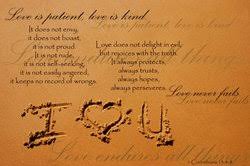 Love is patient, love is kind.
It does not envy,
it does not boast,
it is not proud.
It is not rude,
it is not self-seeking,
it is not easily angered,
it keeps no record of wrongs.
Love does not delight in evil,
but rejoices with the truth.
It always protects,
always trusts,
always hopes,
always perseveres.
Love never fails.
I ♡ U